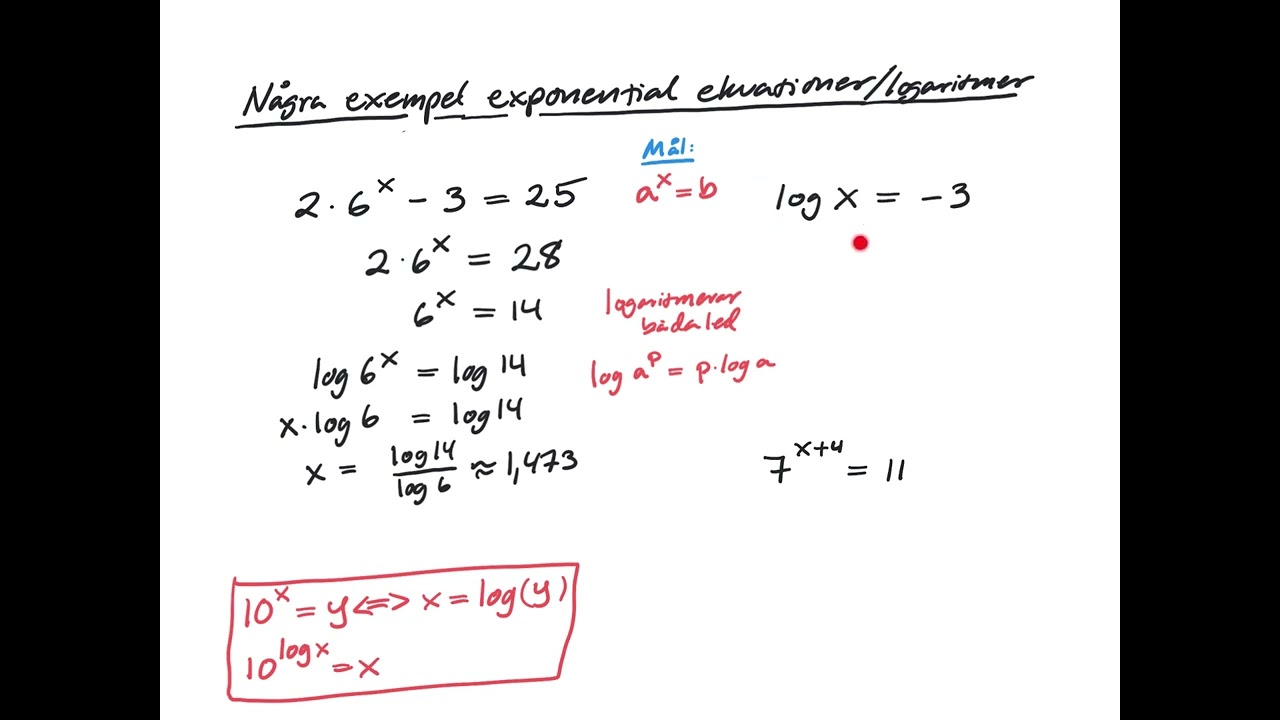 Några exempel exponential ekvationer/logaritmer
2 · 6^x - 3 = 25
Mål:
a^x = b
2 · 6^x = 28
6^x = 14
logaritmerar
båda led
log 6^x = log 14
log a^p = p · log a
x · log 6 = log 14
x = log 14 / log 6 ≈ 1,473
log x = -3
7^(x+4) = 11
10^x = y <=> x = log(y)
10^(log x) = x